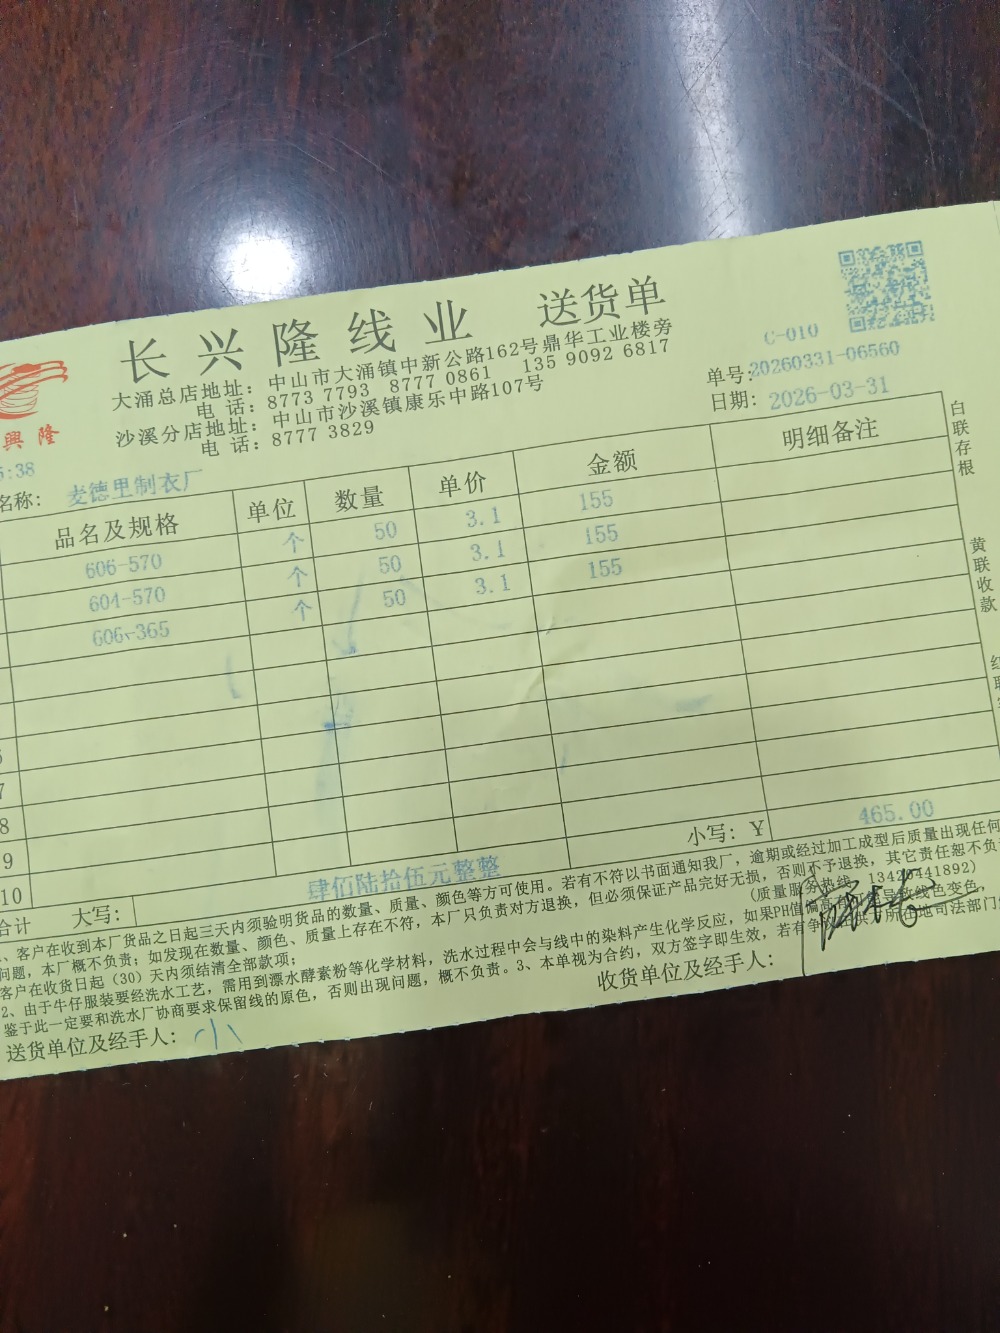 长兴隆线业 送货单
C-010
大涌总店地址：中山市大涌镇中新公路162号鼎华工业楼旁
电 话：8773 7793 8777 0861 135 9092 6817
单号：20260331-06560
沙溪分店地址：中山市沙溪镇康乐中路107号
日期：2026-03-31
电 话：8777 3829
興隆
:38
名称：麦德里制衣厂
品名及规格 单位 数量 单价 金额 明细备注
606-570 个 50 3.1 155
604-570 个 50 3.1 155
606-365 个 50 3.1 155
7
8
9
10
合计 大写：肆佰陆拾伍元整整 小写：￥465.00
、客户在收到本厂货品之日起三天内须验明货品的数量、质量、颜色等方可使用。若有不符以书面通知我厂，逾期或经过加工成型后质量出现任何
问题，本厂概不负责；如发现在数量、颜色、质量上存在不符，本厂只负责对方退换，但必须保证产品完好无损，否则不予退换，其它责任恕不负
客户在收货日起（30）天内须结清全部款项；（质量服务热线：13426441892）
2、由于牛仔服装要经洗水工艺，需用到漂水酵素粉等化学材料，洗水过程中会与线中的染料产生化学反应，如果PH值偏高有可能导致线色变色，
鉴于此一定要和洗水厂协商要求保留线的原色，否则出现问题，概不负责。3、本单视为合约，双方签字即生效，若有争议 所在地司法部门
送货单位及经手人：小
收货单位及经手人：
白联存根
黄联收款